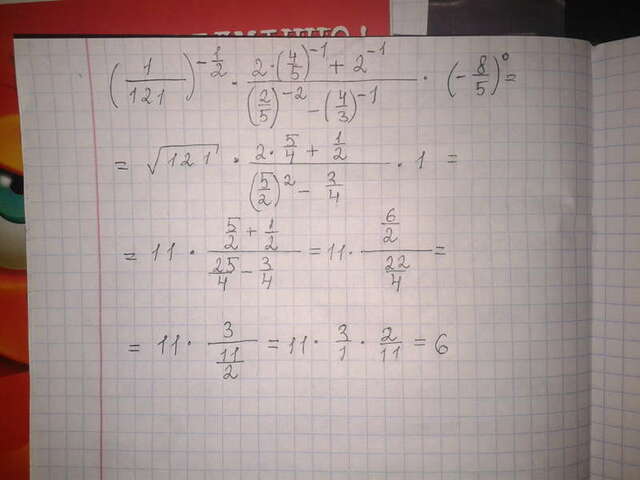 (1/121)^(-1/2) · (2·(4/5)^(-1) + 2^(-1))/((2/5)^(-2) - (4/3)^(-1)) · (-8/5)^0 =
= √121 · (2·5/4 + 1/2)/((5/2)^2 - 3/4) · 1 =
= 11 · (5/2 + 1/2)/(25/4 - 3/4) = 11 · (6/2)/(22/4) =
= 11 · 3/(11/2) = 11 · 3/1 · 2/11 = 6